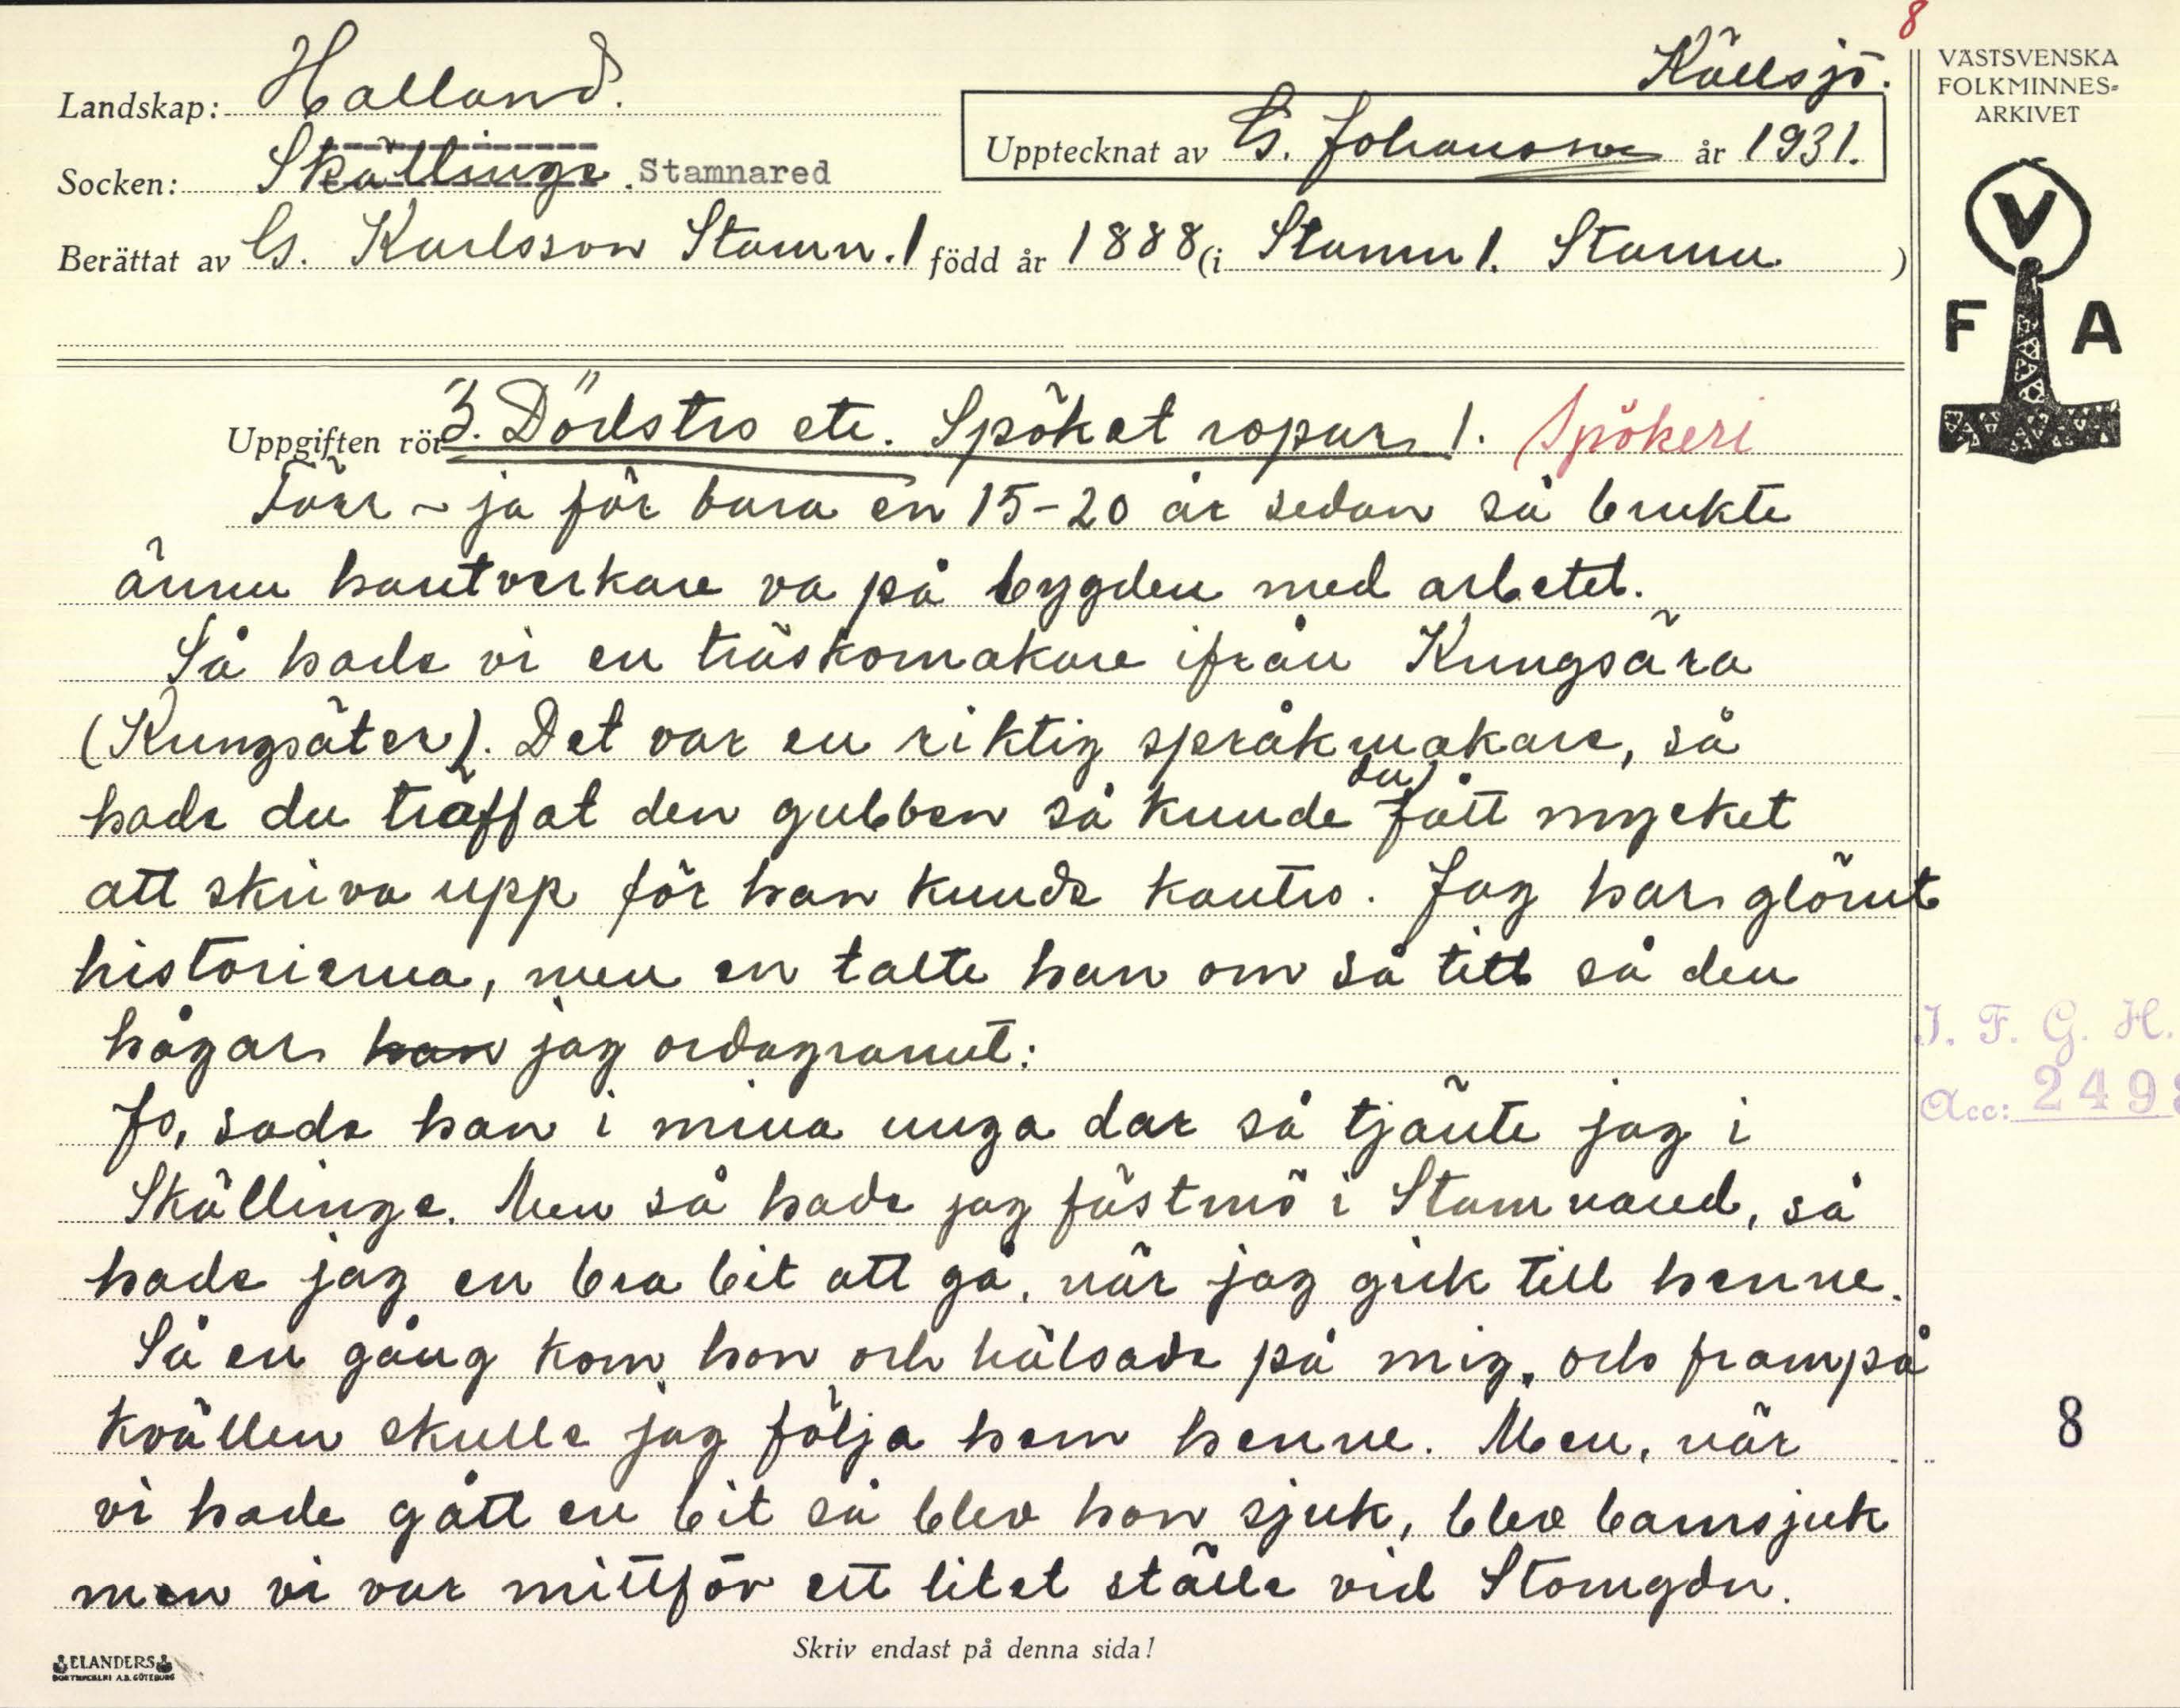 8
Källsjö.
VÄSTSVENSKA
FOLKMINNES-
ARKIVET
Landskap: Halland.
Upptecknat av G. Johansson år 1931.
Socken: Skällinge. Stamnared
Berättat av G. Karlsson Stamn. 1 född år 1888 (i Stamn 1. Stamn.)
V
F A
Uppgiften rör 3. Dödstro etc. Spöket ropar. 1. Spökeri
Förr ~ ja för bara en 15-20 år sedan så brukte
ännu hantverkare va på bygden med arbetet.
Så hade vi en träskomakare ifrån Kungsära
(Kungsäter). Det var en riktig språkmakare, så
hade du träffat den gubben så kunde du fått mycket
att skriva upp för han kunde kantro. Jag har glömt
historierna, men en talte han om så titt så den
hågar han jag ordagrannt:
Jo, sade han i mina unga dar så tjänte jag i
Skällinge. Men så hade jag fästmö i Stamnared, så
hade jag en bra bit att gå, när jag gick till henne.
Så en gång kom hon och hälsade på mig, och frampå
kvällen skulle jag följa hem henne. Men, när
vi hade gått en bit så blev hon sjuk, blev barnsjuk
men vi var mittför ett litet ställe vid
I. F. G. H.
Acc: 2498
8
Skriv endast på denna sida!
ELANDERS
BOKTRYCKERI A.B. GÖTEBORG